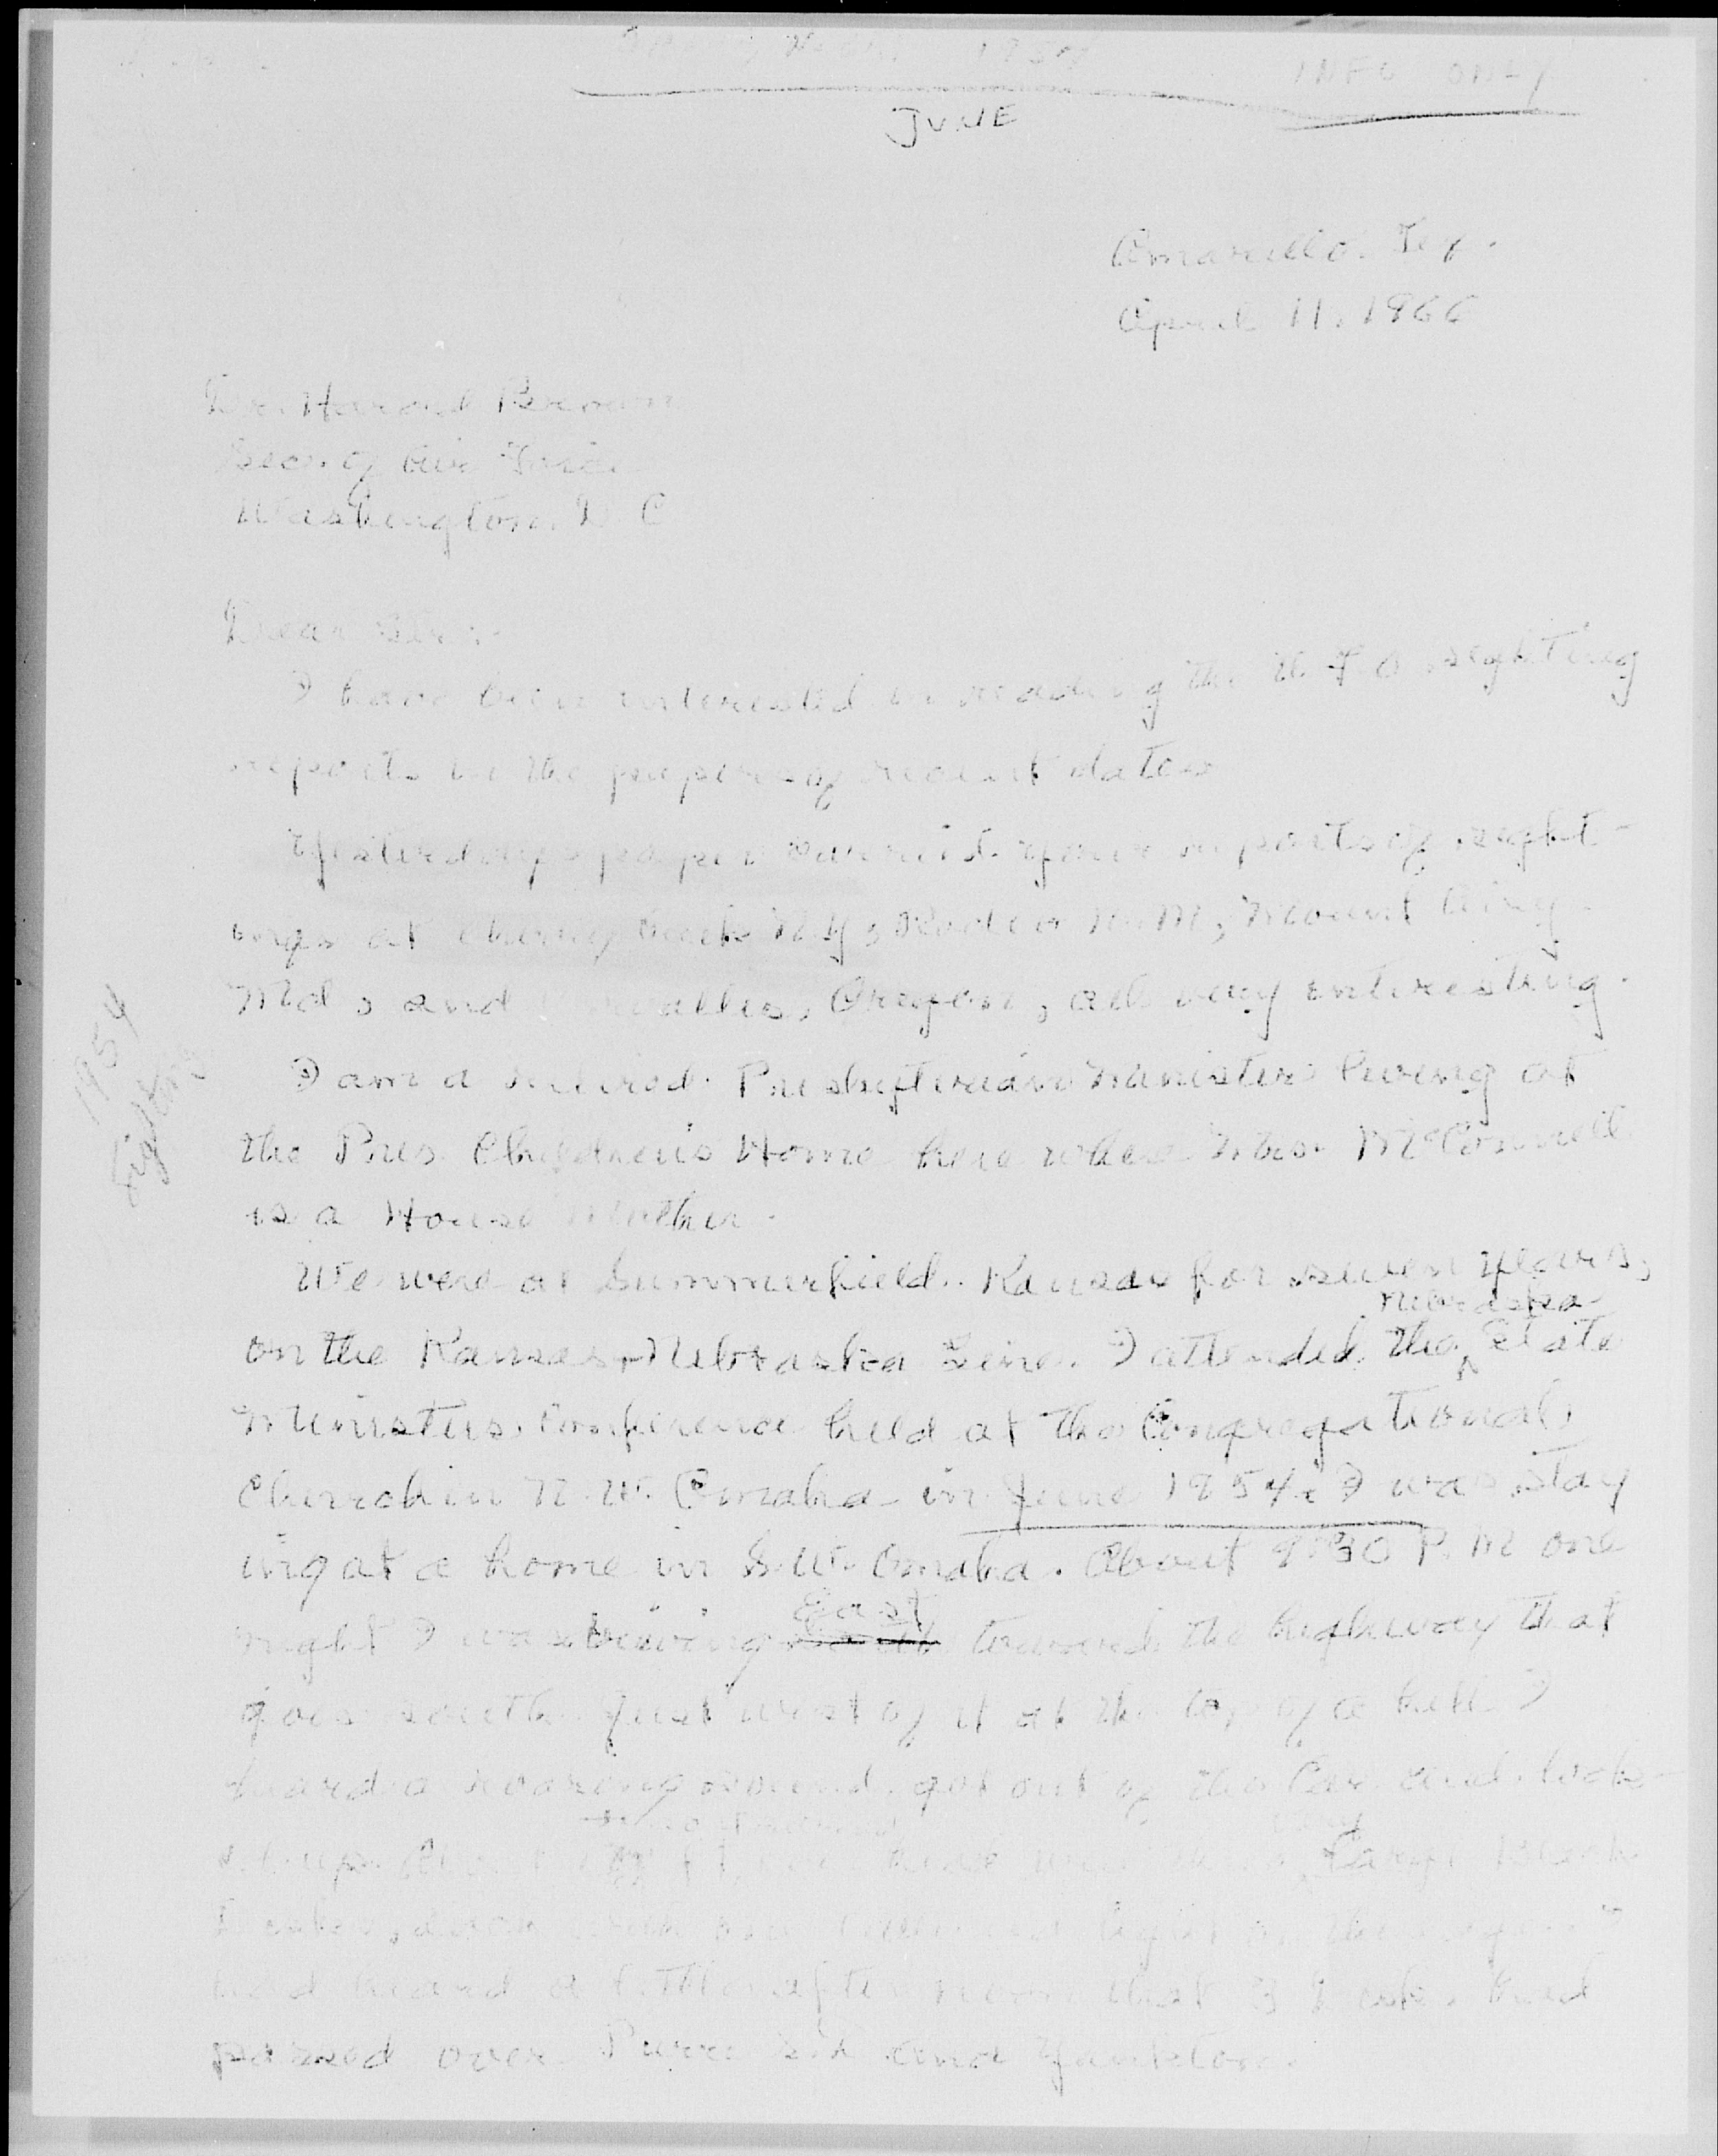 1954
INFO ONLY
JUNE
Amarillo. Tex.
April 11. 1966
Dr. Harold Brown
Sec. of Air Force
Washington. D. C
Dear Sir:-
I have been interested in reading the U. F. O sighting
reports in the papers of recent dates
Yesterdays paper carried your reports of sight-
ings at N.Y, Rodeo N.M, Mount Airy
Md, and Corvallis, Oregon, all very interesting.
I am a retired Presbyterian Minister living at
the Pres. Children's Home here where Mrs. McConnell
is a House Mother.
We were at Summerfield. Kansas for seven years,
on the Kansas-Nebraska Line. I attended the Nebraska State
Ministers. Conference held at the Congregational
Church in N.W. Omaha in June 1954. I was stay
ing at a home in S.W. Omaha. About 9:30 P.M one
night I was driving East toward the highway that
goes south. Just west of it at the top of a hill I
heard a roaring sound. got out of the car and look-
ed up. Large
light on the
had heard a little after noon that 3 had
passed over Pierre S.D. and Yankton.
1954
Sighting